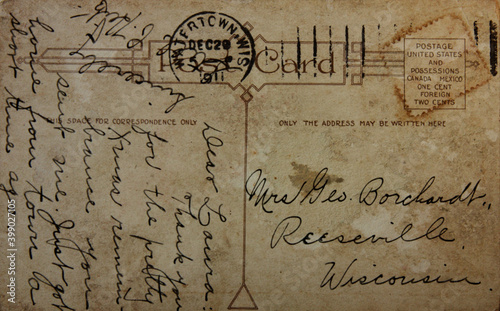 WATERTOWN, WIS.
DEC 29
5 P
1911
Post Card
POSTAGE
UNITED STATES
AND
POSSESSIONS
CANADA MEXICO
ONE CENT
FOREIGN
TWO CENTS
THIS SPACE FOR CORRESPONDENCE ONLY
ONLY THE ADDRESS MAY BE WRITTEN HERE
Dear Laura:
Thank you
for the pretty
Xmas remem-
brance you
sent me. Just got
home from town a
short time ago
Mrs Geo. Borchardt,
Reeseville
Wisconsin.
Adobe Stock | #399027105